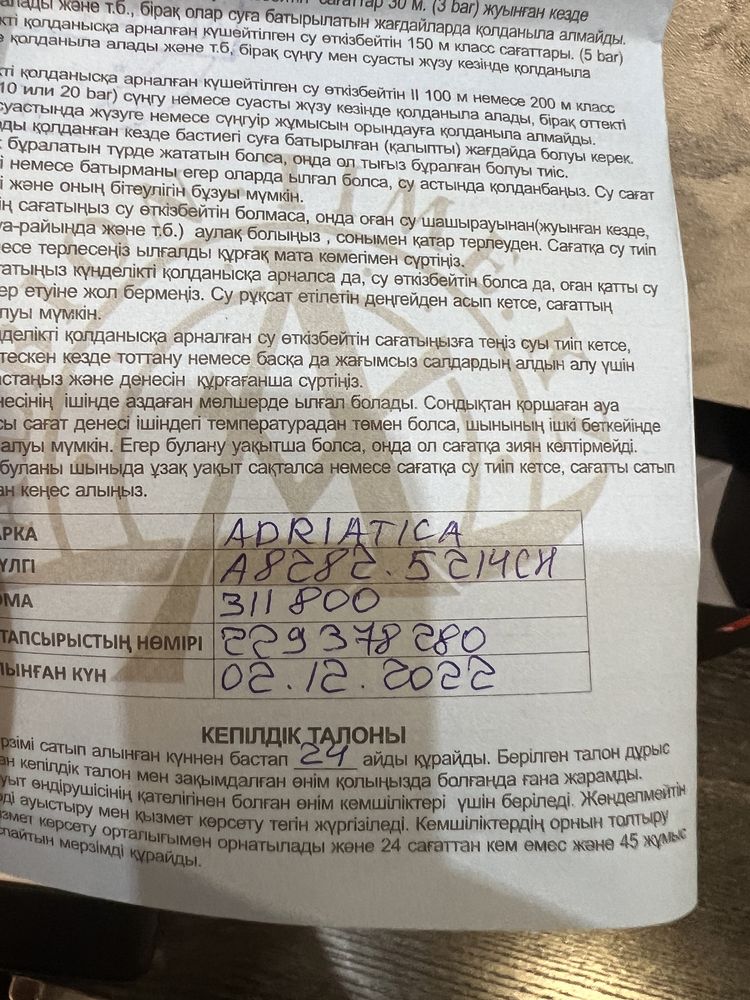 сағаттар 30 м. (3 bar) жуынған кезде
және т.б., бірақ олар суға батырылатын жағдайларда қолданыла алмайды.
қолданысқа арналған күшейтілген су өткізбейтін 150 м класс сағаттары. (5 bar)
қолданыла алады және т.б, бірақ сүңгу мен суасты жүзу кезінде қолданыла
қолданысқа арналған күшейтілген су өткізбейтін II 100 м немесе 200 м класс
10 или 20 bar) сүңгу немесе суасты жүзу кезінде қолданыла алады, бірақ оттекті
суастында жүзуге немесе сүңгуір жұмысын орындауға қолданыла алмайды.
қолданған кезде бастиегі суға батырылған (қалыпты) жағдайда болуы керек.
бұралатын түрде жататын болса, онда ол тығыз бұралған болуы тиіс.
немесе батырманы егер оларда ылғал болса, су астында қолданбаңыз. Су сағат
және оның бітеулігін бұзуы мүмкін.
сағатыңыз су өткізбейтін болмаса, онда оған су шашырауынан(жуынған кезде,
және т.б.) аулақ болыңыз , сонымен қатар терлеуден. Сағатқа су тиіп
терлесеңіз ылғалды құрғақ мата көмегімен сүртіңіз.
күнделікті қолданысқа арналса да, су өткізбейтін болса да, оған қатты су
етуіне жол бермеңіз. Су рұқсат етілетін деңгейден асып кетсе, сағаттың
мүмкін.
қолданысқа арналған су өткізбейтін сағатыңызға теңіз суы тиіп кетсе,
кезде тоттану немесе басқа да жағымсыз салдардың алдын алу үшін
және денесін құрғағанша сүртіңіз.
ішінде аздаған мөлшерде ылғал болады. Сондықтан қоршаған ауа
сағат денесі ішіндегі температурадан төмен болса, шынының ішкі беткейінде
мүмкін. Егер булану уақытша болса, онда ол сағатқа зиян келтірмейді.
буланы шыныда ұзақ уақыт сақталса немесе сағатқа су тиіп кетсе, сағатты сатып
кеңес алыңыз.
АРКА ADRIATICA
ҮЛГІ A8282.5214CH
ОМА 311800
ТАПСЫРЫСТЫҢ НӨМІРІ 229378280
ЫНҒАН КҮН 02.12.2022
КЕПІЛДІК ТАЛОНЫ
сатып алынған күннен бастап 24 айды құрайды. Берілген талон дұрыс
кепілдік талон мен зақымдалған өнім қолыңызда болғанда ғана жарамды.
өндірушісінің қателігінен болған өнім кемшіліктері үшін беріледі. Жөнделмейтін
ауыстыру мен қызмет көрсету тегін жүргізіледі. Кемшіліктердің орнын толтыру
көрсету орталығымен орнатылады және 24 сағаттан кем емес және 45 жұмыс
мерзімді құрайды.